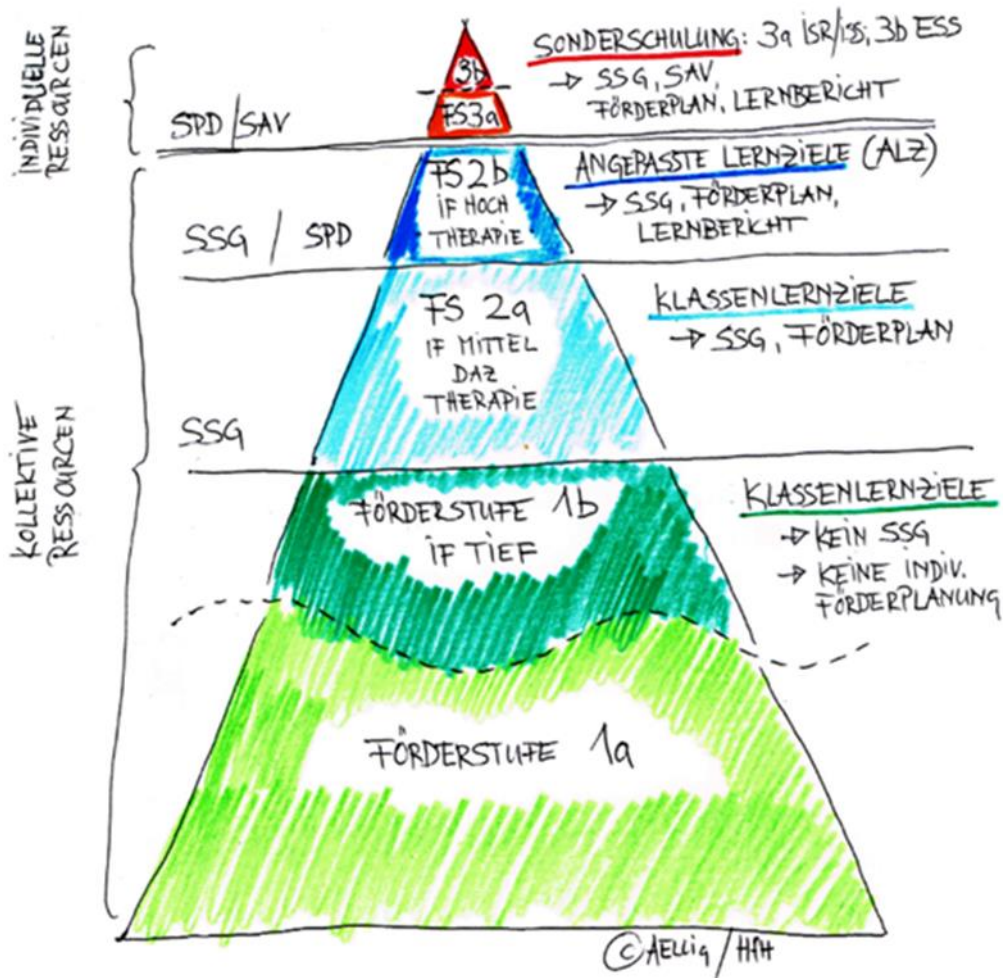 INDIVIDUELLE
RESSOURCEN
SPD/SAV
3b
FS3a
SONDERSCHULUNG: 3a ISR/ISS, 3b ESS
→ SSG, SAV,
FÖRDERPLAN, LERNBERICHT
SSG / SPD
FS2b
IF HOCH
THERAPIE
ANGEPASSTE LERNZIELE (ALZ)
→ SSG, FÖRDERPLAN,
LERNBERICHT
KOLLEKTIVE
RESSOURCEN
SSG
FS 2a
IF MITTEL
DAZ
THERAPIE
KLASSENLERNZIELE
→ SSG, FÖRDERPLAN
FÖRDERSTUFE 1b
IF TIEF
KLASSENLERNZIELE
→ KEIN SSG
→ KEINE INDIV.
FÖRDERPLANUNG
FÖRDERSTUFE 1a
© AELLIG/HfH